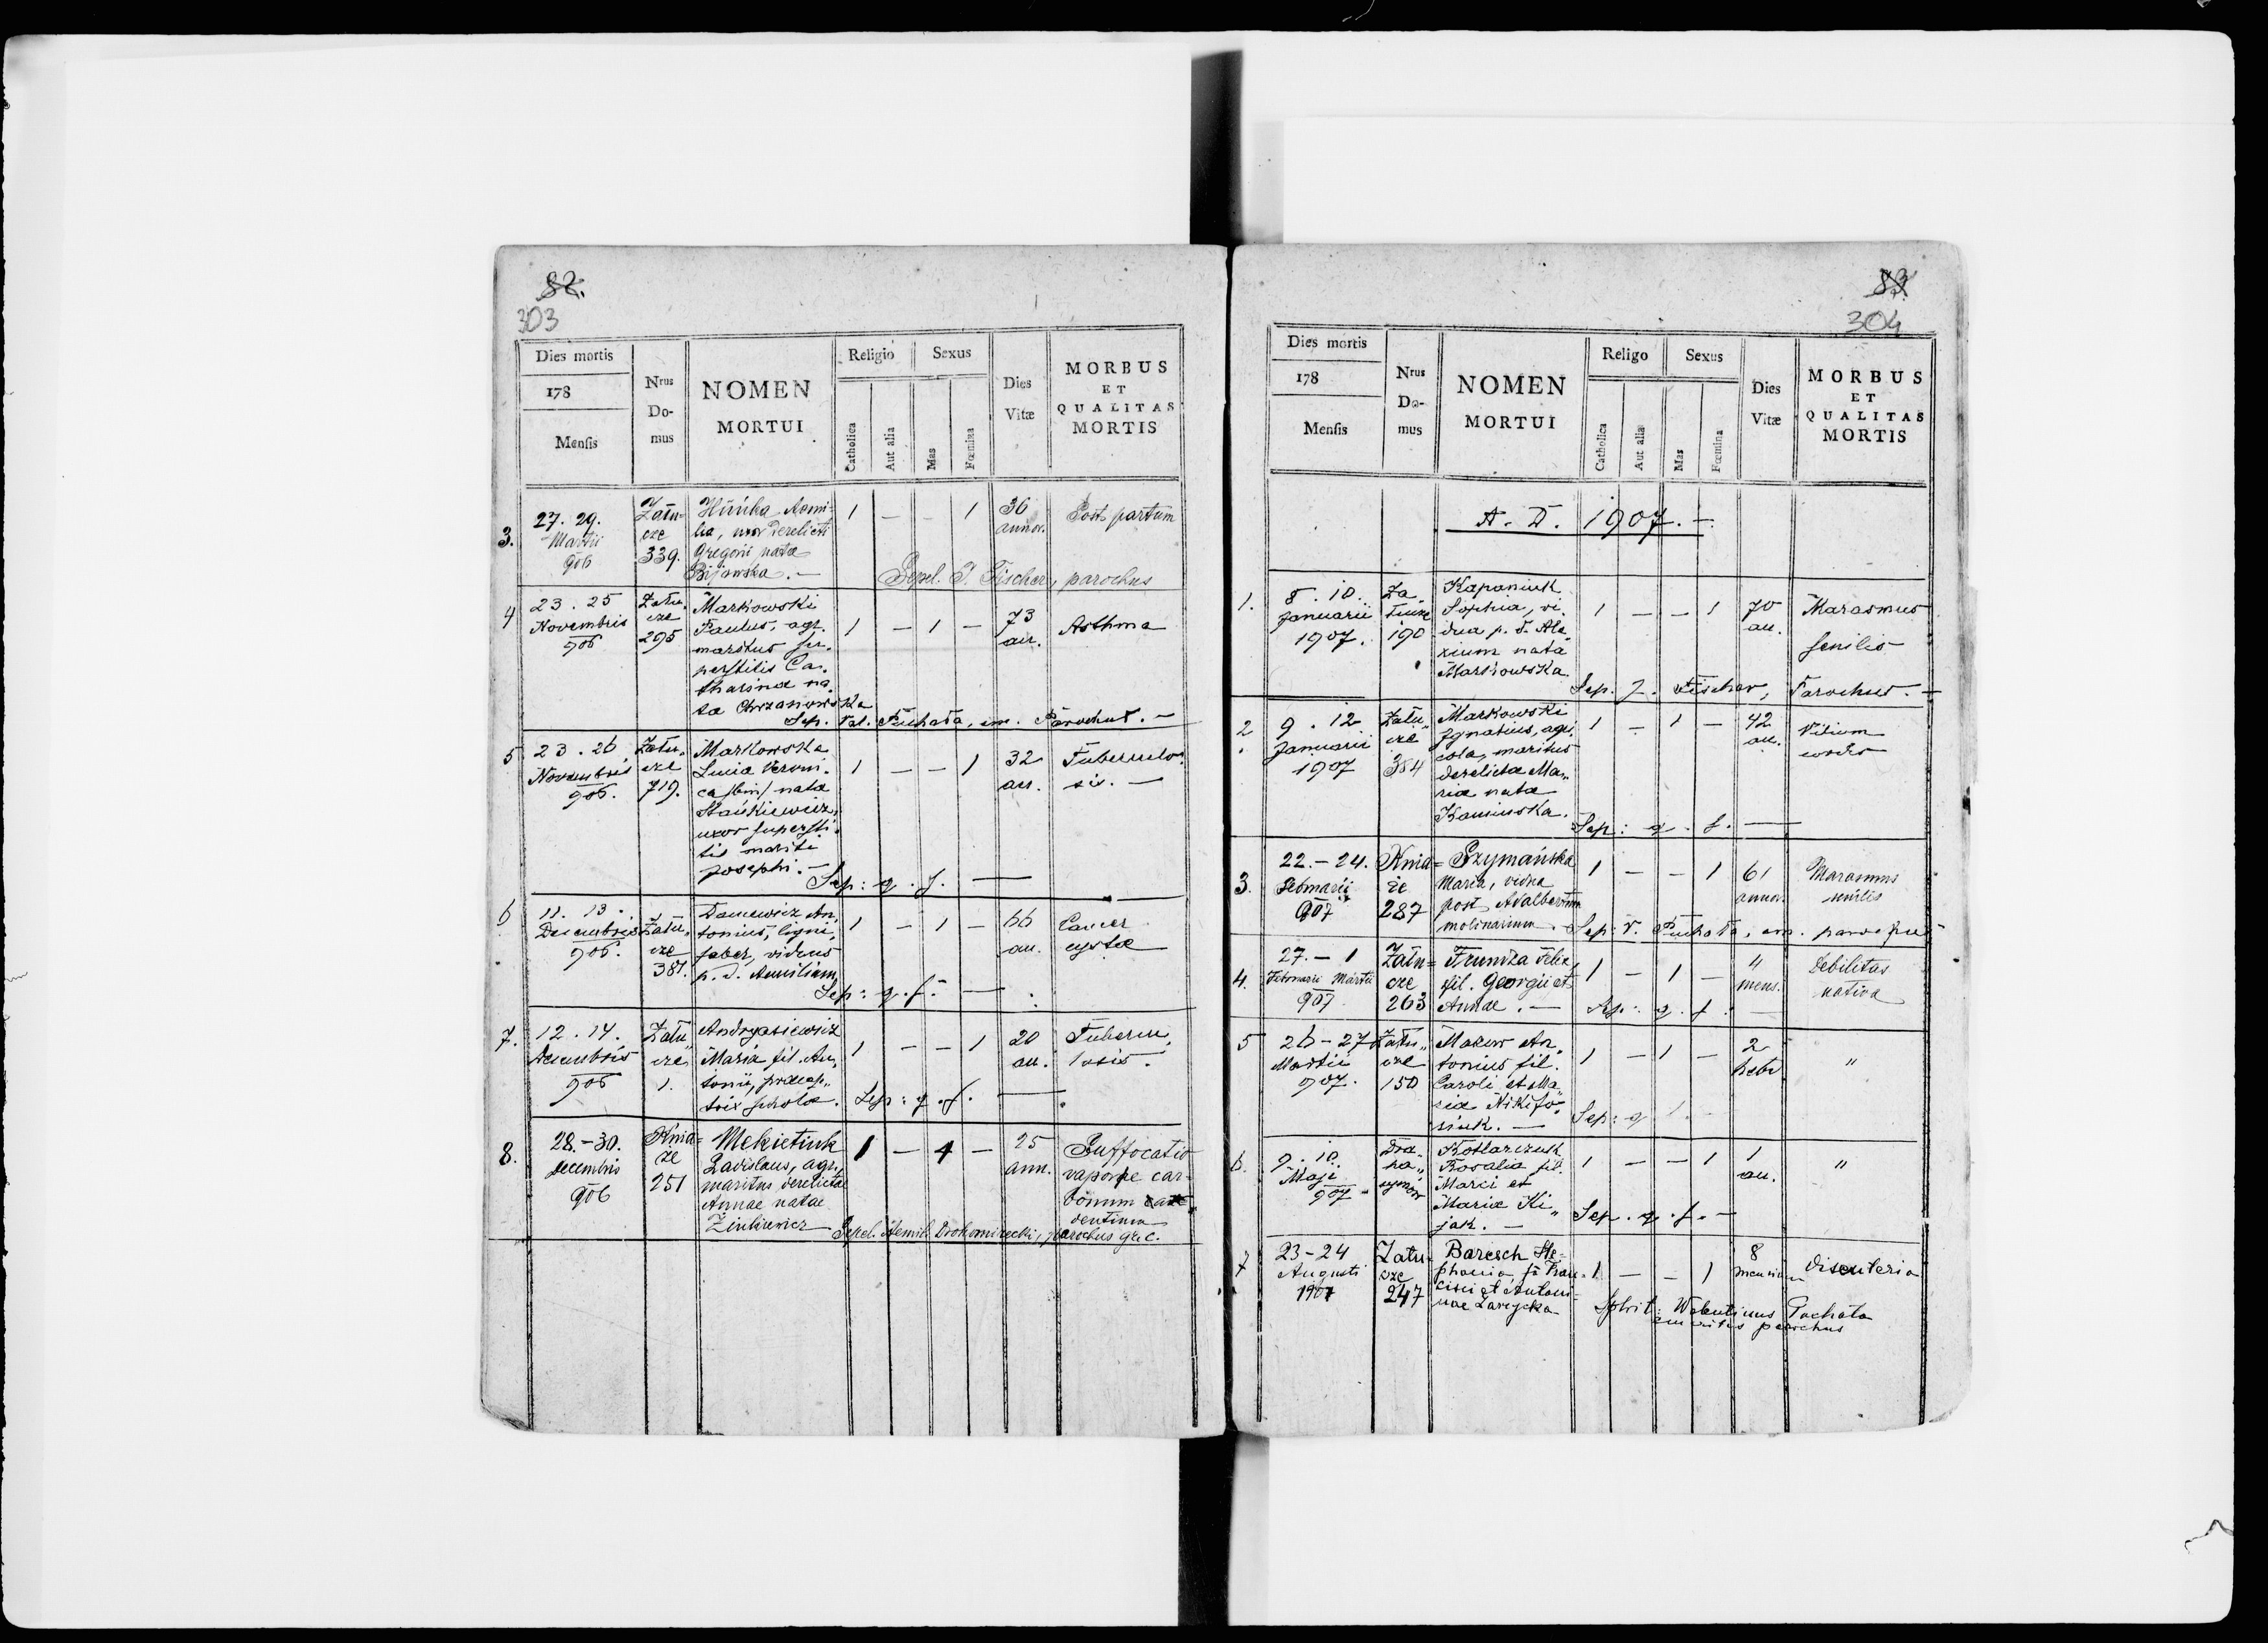 82.
303
Dies mortis
178
Mensis
Nrus
Do-
mus
NOMEN
MORTUI
Religio
Catholica
Aut alia
Sexus
Mas
Fœmina
Dies
Vitæ
MORBUS
ET
QUALITAS
MORTIS
3.
27. 29.
Martii
906
Zału=
cze
339.
lia, uxor derelicti
Gregorii nata
Bijowska. —
1 — — 1
36
annor.
Post partum
Sepel. J. Fischer, parochus
4
23. 25
Novembris
906
Zału„
cze
295
Markowski
Paulus, agr.
maritus su„
perstitis Ca„
tharinæ na„
ta Chrzanowska
1 — 1 —
73
an.
Asthma
Sep. Val. Puchała, em. Parochus. —
5
23. 26
Novembris
906.
Zału„
cze
719.
Markowska
Lucia Veroni„
ca /bin/ nata
Stańkiewicz,
uxor supersti„
tis mariti
Josephi. —
1 — — 1
32
an.
Tuberculo„
sis. —
Sep: q. s. —
6
11. 13.
Decembris
906.
Zału„
cze
381.
Danewicz An„
tonius, ligni„
faber, viduus
p. d. Aemiliam
1 — 1 —
66
an.
Cancer
cystæ
Sep: q. s. —
7.
12. 14.
Decembris
906
Zału„
cze
1.
Andryasiewicz
Maria fil. An„
tonii, præcep„
trix scholæ.
1 — — 1
20
an.
Tubercu„
losis.
Sep: q. s. —
8.
28.-30.
Decembris
906
Knia=
że
251
Mekietiuk
Ladislaus, agr.,
maritus derelictae
Annae natae
Zinkiewicz
1 — 1 —
25
ann.
Suffocatio
vapore car-
bonum
dentium
Sepel. Aemil. Drohomirecki, parochus gr. c.
83.
304
Dies mortis
178
Mensis
Nrus
Do-
mus
NOMEN
MORTUI
Religo
Catholica
Aut alia
Sexus
Mas
Fœmina
Dies
Vitæ
MORBUS
ET
QUALITAS
MORTIS
A. D. 1907. —
1.
8. 10.
Januarii
1907.
Za„
łucze
190
Kapaniuk
Sophia, vi„
dua p. d. Ale„
xium nata
Markowska
1 — — 1
70
an.
Marasmus
senilis
Sep. J. Fischer, Parochus. —
2
9. 12
Januarii
1907
Zału„
cze
384
Markowski
Ignatius, agri„
cola, maritus
derelictæ Ma„
riæ natæ
Kaminska.
1 — 1 —
42
an.
Vitium
cordis
Sep: q. s. —
3.
22.-24.
Februarii
907
Knia=
że
287
Szymańska
Maria, vidua
post Adalbertum
molinarium
1 — — 1
61
annor.
Marasmus
senilis
Sep: V. Puchała, em. parochus
4.
27. — 1
Februarii Martii
907
Zału=
cze
263
fil. Georgii et
Annae. —
1 — 1 —
4
mens.
Debilitas
nativa
Sep: q. s. —
5
26-27
Martii
907.
Zału„
cze
150
Mazur An„
tonius fil.
Caroli et Ma„
riæ Nikifo„
siuk. —
1 — 1 —
2
hebd.
"
Sep: q. s. —
6.
9. 10.
Maji
907
Kotlarczuk
Rosalia fil.
Marci et
Mariæ Ki„
jak. —
1 — — 1
1
an.
"
Sep. q. s. —
7
23-24
Augusti
1907
Zału-
cze
247
Baresch Ste-
phania, fa Fran-
cisci et Antoni-
nae Zarycka
1 — — 1
8
mensium
Disenteria
Splvit: Walentinus Puchała
emeritus parochus